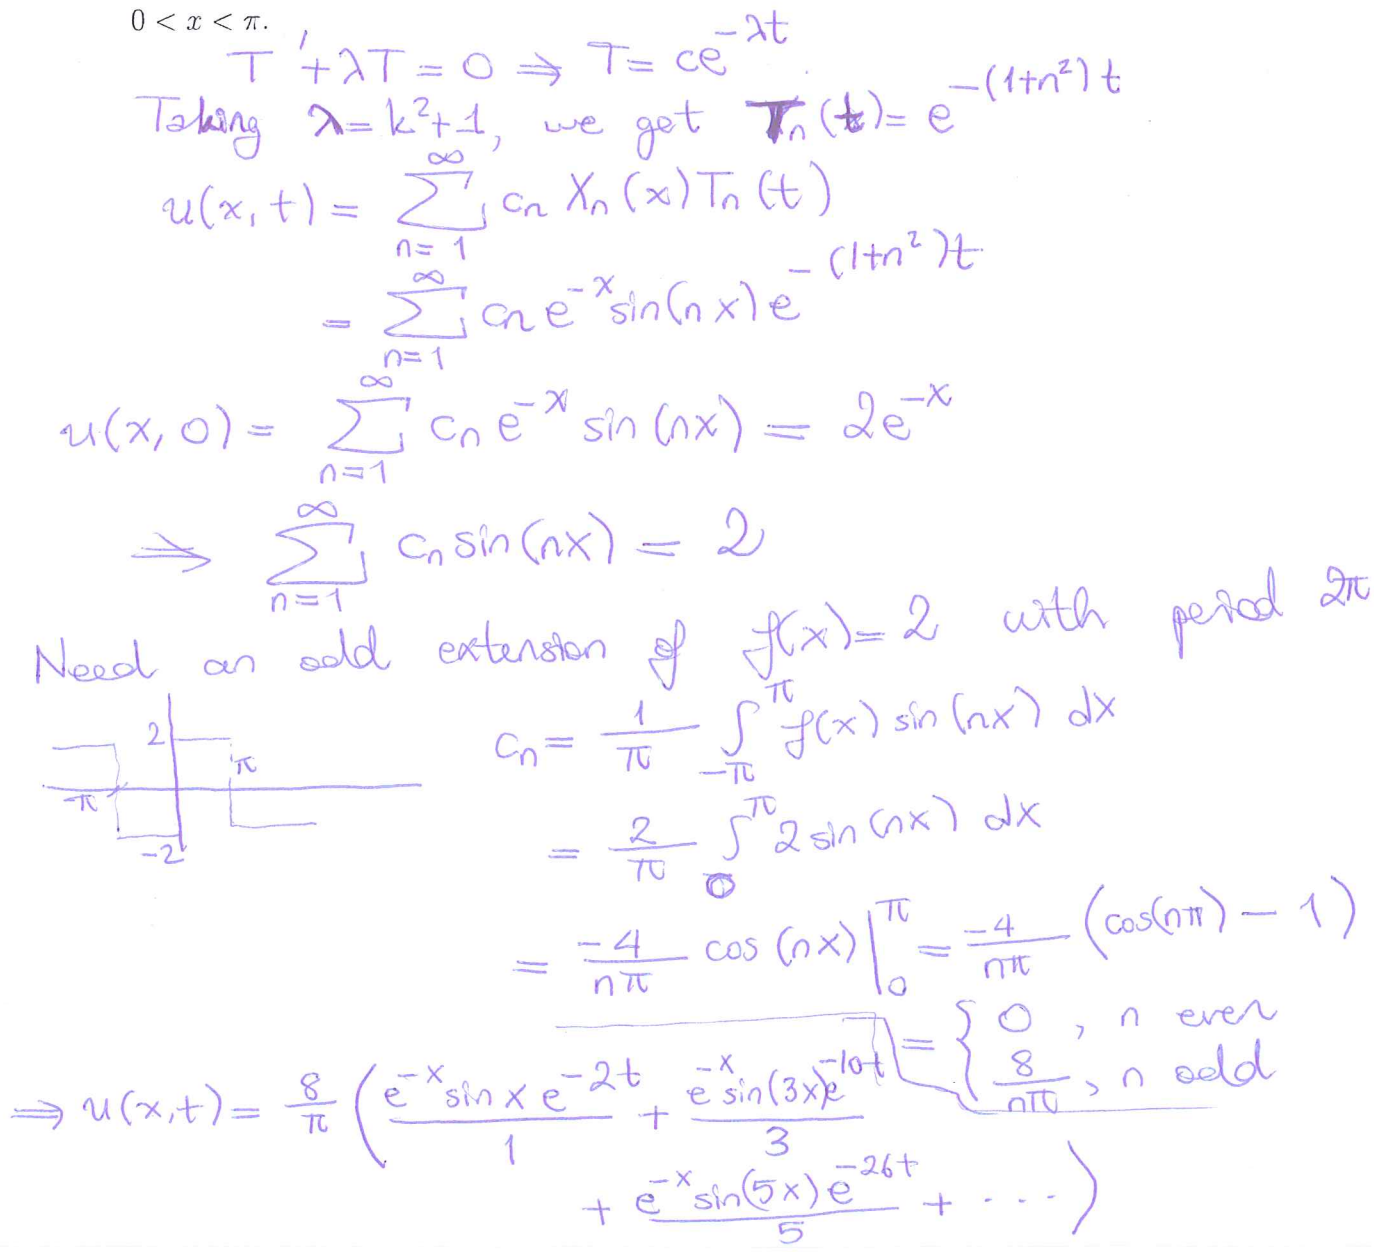 0 < x < π.
T' + λT = 0 ⇒ T = ce^{-λt}
Taking λ = k²+1, we get T_n(t) = e^{-(1+n²)t}
u(x,t) = ∑_{n=1}^{∞} c_n X_n(x) T_n(t)
= ∑_{n=1}^{∞} c_n e^{-x} sin(nx) e^{-(1+n²)t}
u(x,0) = ∑_{n=1}^{∞} c_n e^{-x} sin(nx) = 2e^{-x}
⇒ ∑_{n=1}^{∞} c_n sin(nx) = 2
Need an odd extension of f(x) = 2 with period 2π
2
π
-π
-2
c_n = 1/π ∫_{-π}^{π} f(x) sin(nx) dx
= 2/π ∫_{0}^{π} 2 sin(nx) dx
= -4/(nπ) cos(nx) |_{0}^{π} = -4/(nπ) (cos(nπ) - 1)
= { 0, n even
8/(nπ), n odd
⇒ u(x,t) = 8/π ( e^{-x} sin x e^{-2t}/1 + e^{-x} sin(3x) e^{-10t}/3
+ e^{-x} sin(5x) e^{-26t}/5 + .... )